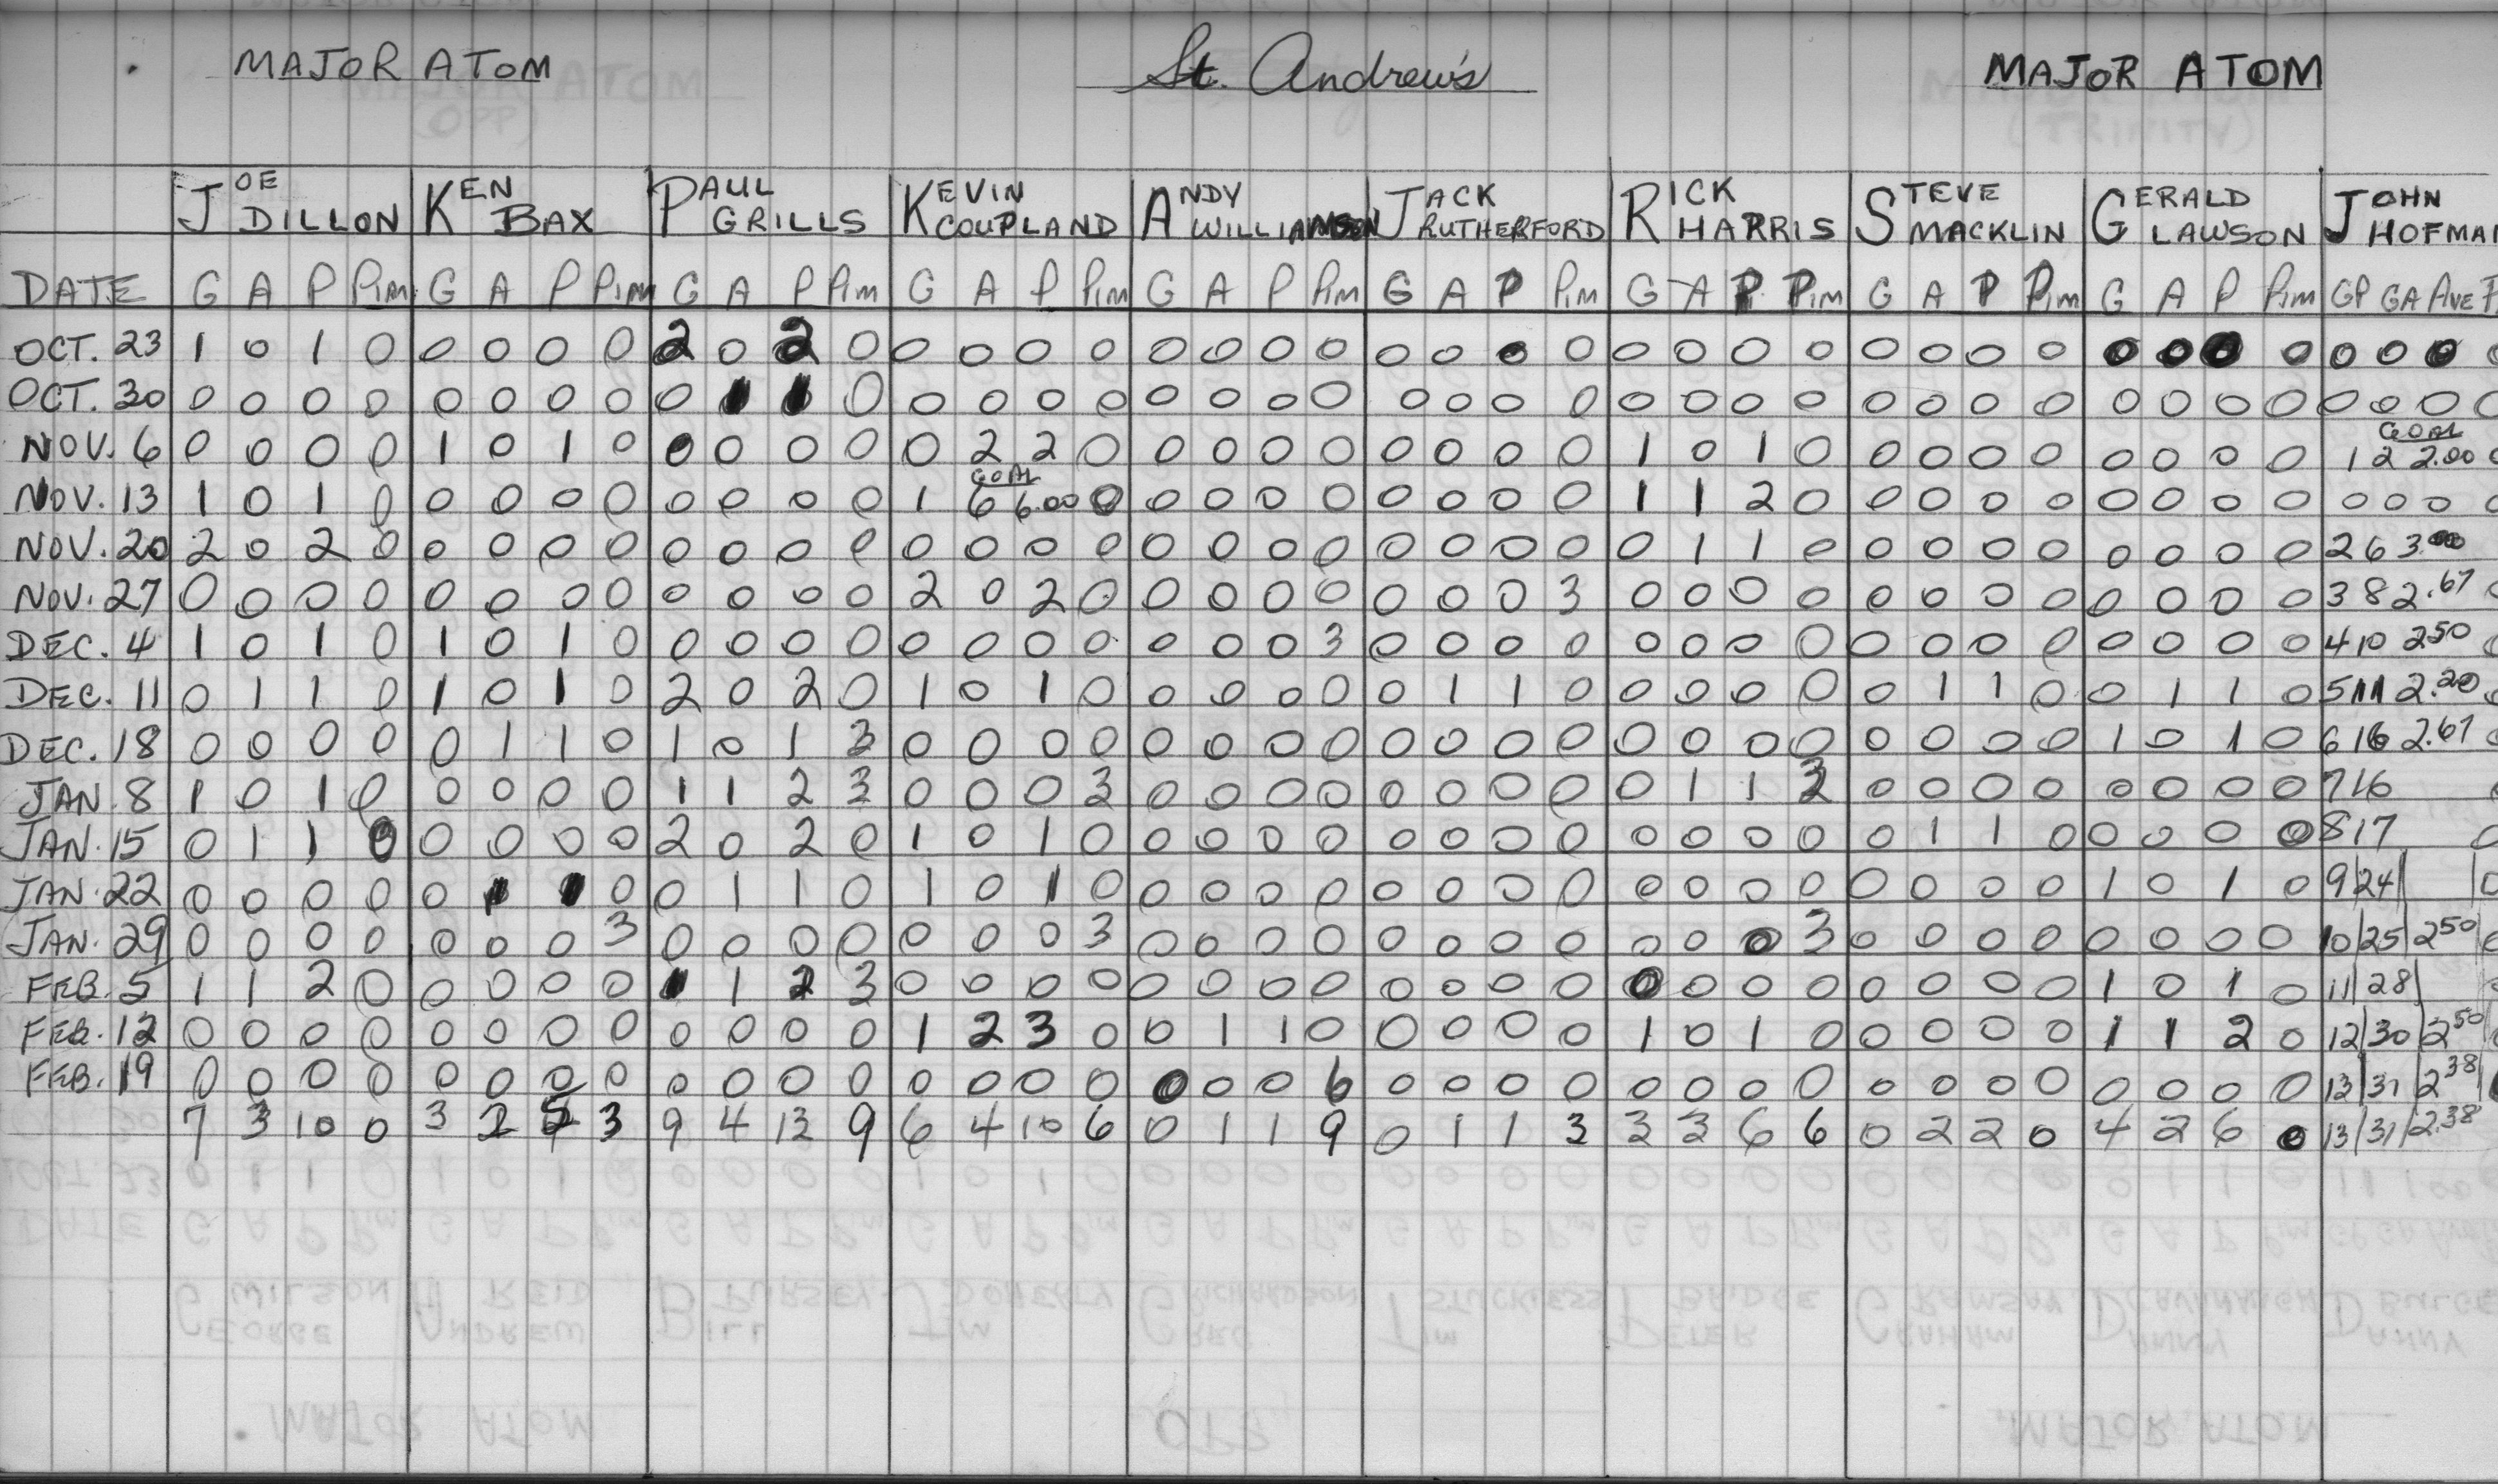 MAJOR ATOM St. Andrew's MAJOR ATOM
JOE DILLON KEN BAX PAUL GRILLS KEVIN COUPLAND ANDY WILLIAMSON JACK RUTHERFORD RICK HARRIS STEVE MACKLIN GERALD LAWSON JOHN HOFMAN
DATE G A P PIM G A P PIM G A P PIM G A P PIM G A P PIM G A P PIM G A P PIM G A P PIM G A P PIM GP GA AVE P
OCT. 23 1 0 1 0 0 0 0 0 2 0 2 0 0 0 0 0 0 0 0 0 0 0 0 0 0 0 0 0 0 0 0 0 0 0 0 0 0 0 0 0
OCT. 30 0 0 0 0 0 0 0 0 0 1 1 0 0 0 0 0 0 0 0 0 0 0 0 0 0 0 0 0 0 0 0 0 0 0 0 0 0 0 0 0
NOV. 6 0 0 0 0 1 0 1 0 0 0 0 0 0 2 2 0 0 0 0 0 0 0 0 0 1 0 1 0 0 0 0 0 0 0 0 0 GOAL 1 2 2.00 0
NOV. 13 1 0 1 0 0 0 0 0 0 0 0 0 GOAL 1 6 6.00 0 0 0 0 0 0 0 0 0 1 1 2 0 0 0 0 0 0 0 0 0 0 0 0 0
NOV. 20 2 0 2 0 0 0 0 0 0 0 0 0 0 0 0 0 0 0 0 0 0 0 0 0 0 1 1 0 0 0 0 0 0 0 0 0 2 6 3.00
NOV. 27 0 0 0 0 0 0 0 0 0 0 0 0 2 0 2 0 0 0 0 0 0 0 0 3 0 0 0 0 0 0 0 0 0 0 0 0 3 8 2.67 0
DEC. 4 1 0 1 0 1 0 1 0 0 0 0 0 0 0 0 0 0 0 0 3 0 0 0 0 0 0 0 0 0 0 0 0 0 0 0 0 4 10 2.50 0
DEC. 11 0 1 1 0 1 0 1 0 2 0 2 0 1 0 1 0 0 0 0 0 0 1 1 0 0 0 0 0 0 1 1 0 0 1 1 0 5 11 2.20 0
DEC. 18 0 0 0 0 0 1 1 0 1 0 1 3 0 0 0 0 0 0 0 0 0 0 0 0 0 0 0 0 0 0 0 0 1 0 1 0 6 16 2.67 0
JAN. 8 1 0 1 0 0 0 0 0 1 1 2 3 0 0 0 3 0 0 0 0 0 0 0 0 0 1 1 3 0 0 0 0 0 0 0 0 7 16
JAN. 15 0 1 1 0 0 0 0 0 2 0 2 0 1 0 1 0 0 0 0 0 0 0 0 0 0 0 0 0 0 1 1 0 0 0 0 0 8 17 0
JAN. 22 0 0 0 0 0 1 1 0 0 1 1 0 1 0 1 0 0 0 0 0 0 0 0 0 0 0 0 0 0 0 0 0 1 0 1 0 9 | 24 | | 0
JAN. 29 0 0 0 0 0 0 0 3 0 0 0 0 0 0 0 3 0 0 0 0 0 0 0 0 0 0 0 3 0 0 0 0 0 0 0 0 10 | 25 | 2 50 | 0
FEB. 5 1 1 2 0 0 0 0 0 1 1 2 3 0 0 0 0 0 0 0 0 0 0 0 0 0 0 0 0 0 0 0 0 1 0 1 0 11 | 28 |
FEB. 12 0 0 0 0 0 0 0 0 0 0 0 0 1 2 3 0 0 1 1 0 0 0 0 0 1 0 1 0 0 0 0 0 1 1 2 0 12 | 30 | 2 50
FEB. 19 0 0 0 0 0 0 0 0 0 0 0 0 0 0 0 0 0 0 0 6 0 0 0 0 0 0 0 0 0 0 0 0 0 0 0 0 13 | 31 | 2 38 |
7 3 10 0 3 2 5 3 9 4 13 9 6 4 10 6 0 1 1 9 0 1 1 3 3 3 6 6 0 2 2 0 4 2 6 0 13 | 31 | 2.38